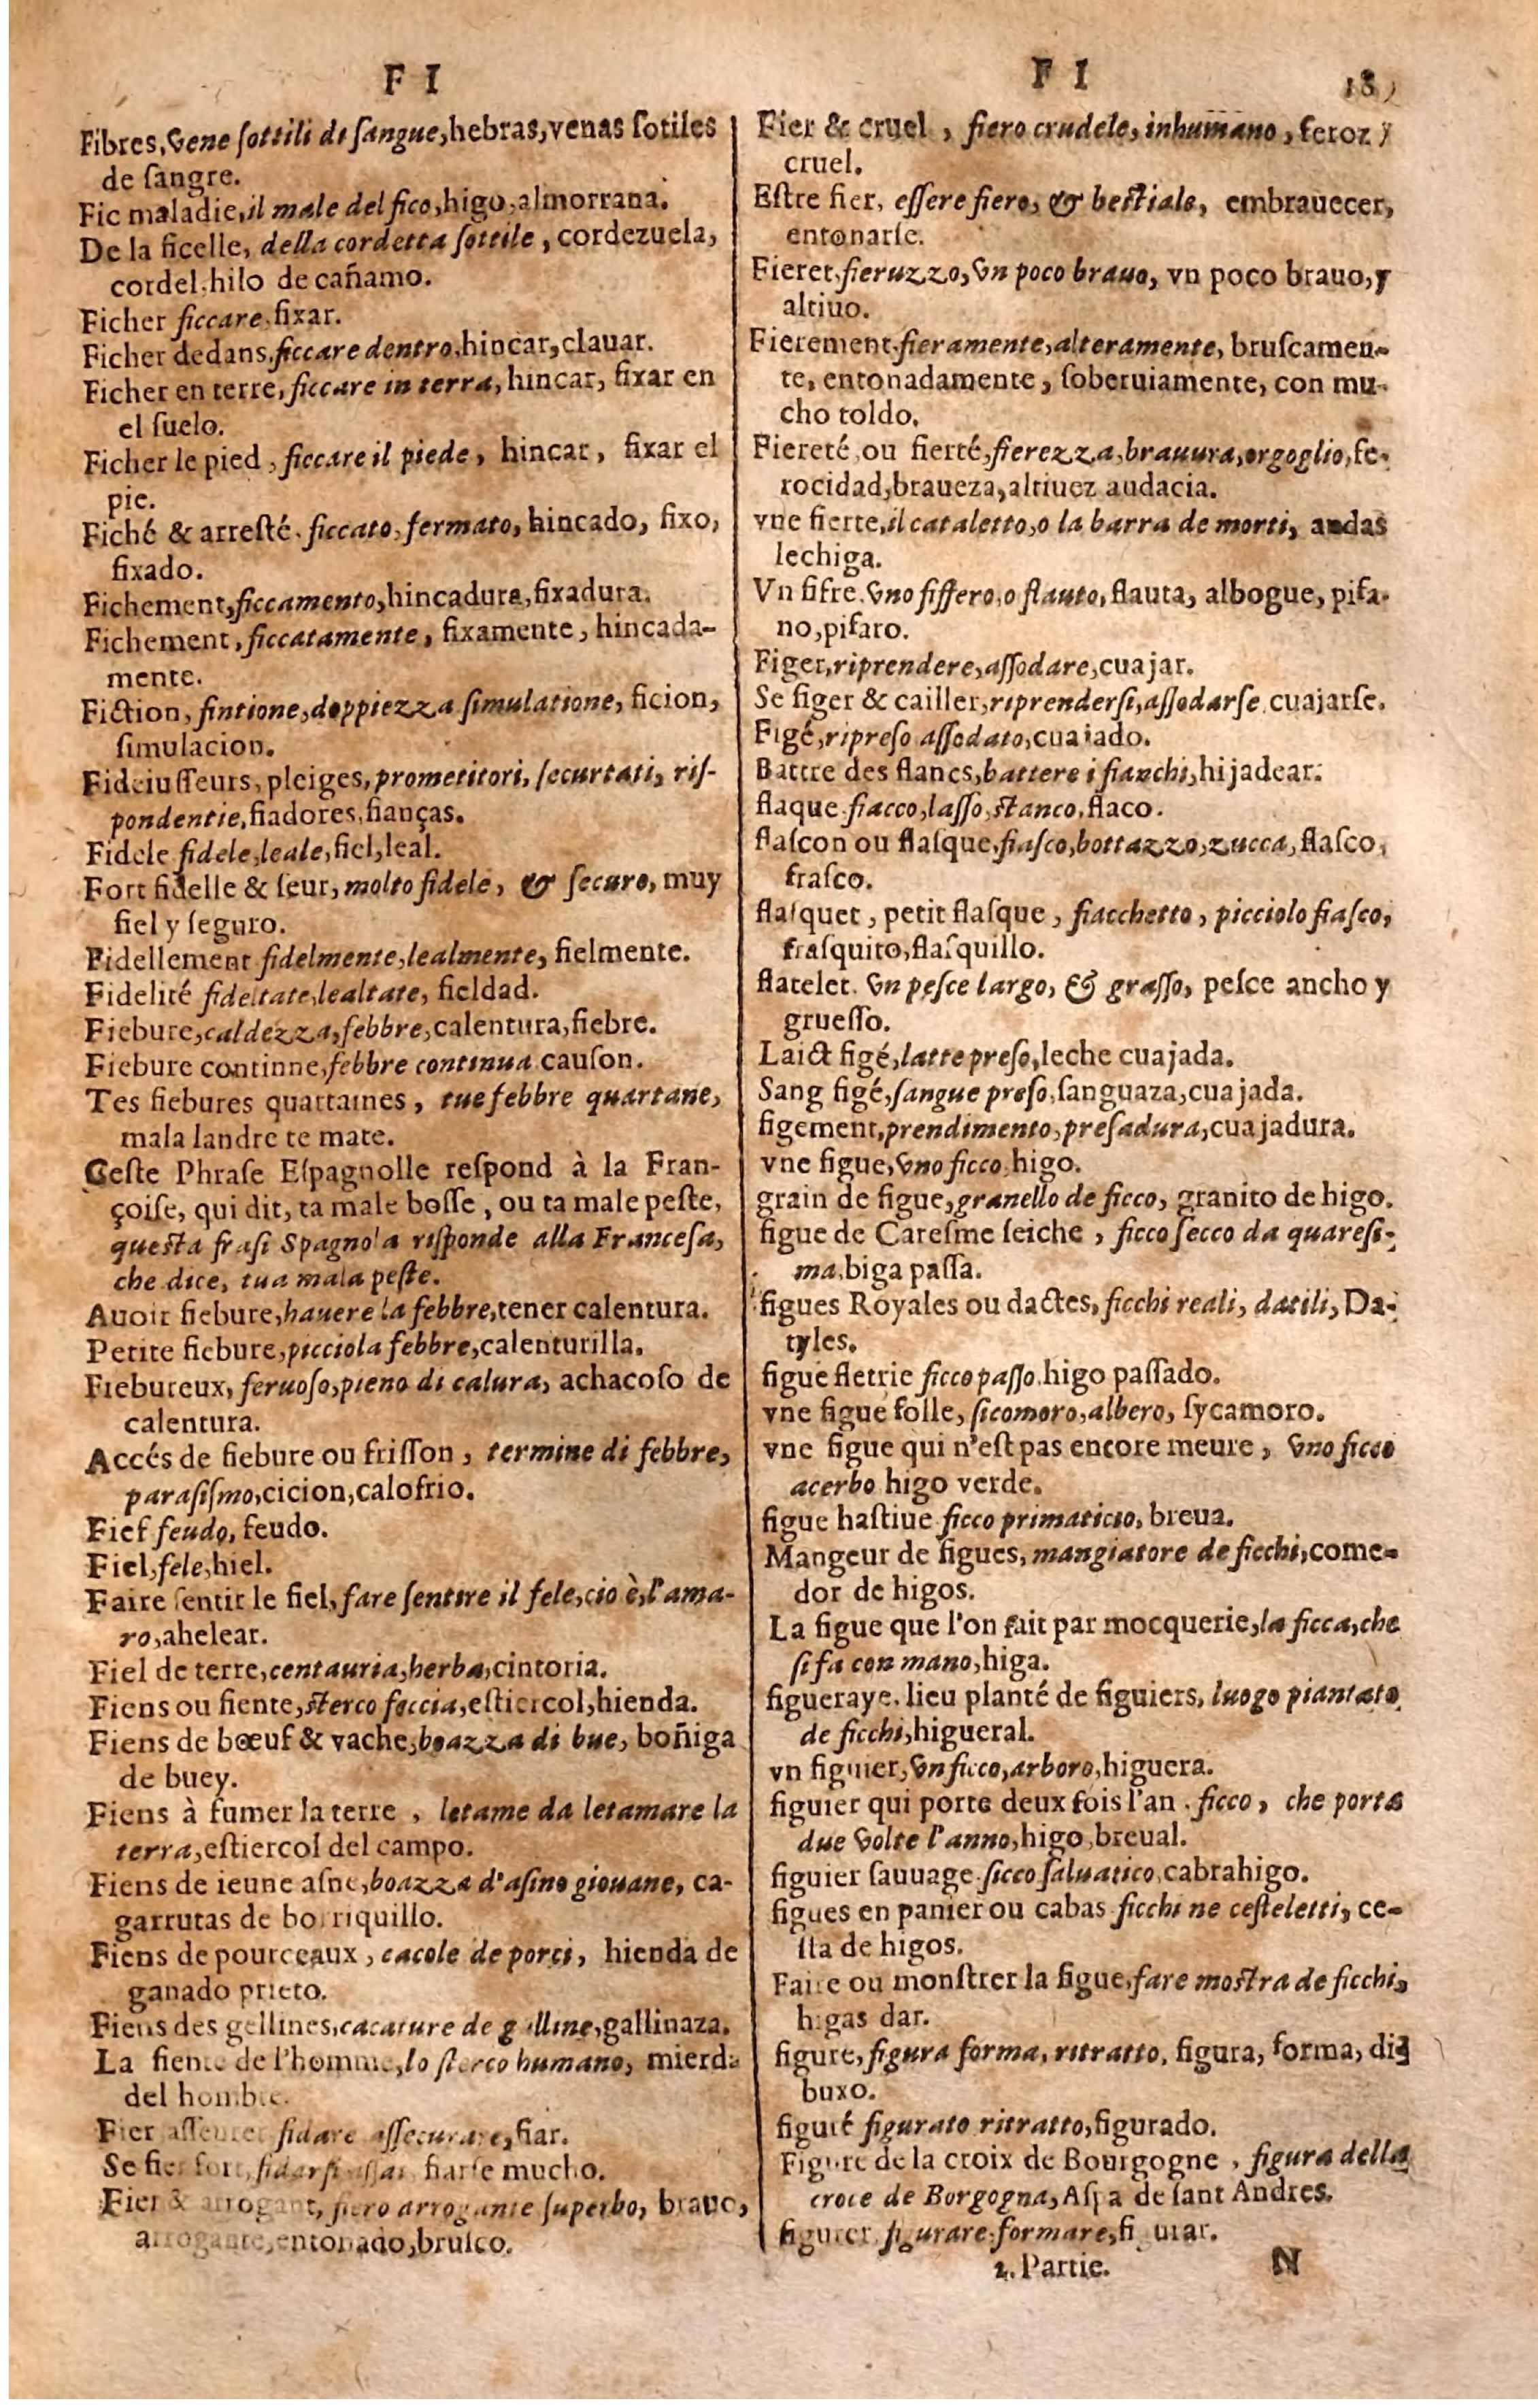 F I
Fibres, vene ſottili di ſangue, hebras, venas ſotiles
de ſangre.
Fic maladie, il male del fico, higo, almorrana.
De la ficelle, della cordetta ſottile, cordezuela,
cordel, hilo de cañamo.
Ficher ficcare, fixar.
Ficher dedans, ficcare dentro, hincar, clauar.
Ficher en terre, ficcare in terra, hincar, fixar en
el ſuelo.
Ficher le pied, ficcare il piede, hincar, fixar el
pie.
Fiché & arreſté. ficcato, fermato, hincado, fixo,
fixado.
Fichement, ficcamento, hincadura, fixadura.
Fichement, ficcatamente, fixamente, hincada-
mente.
Fiction, fintione, doppiezza ſimulatione, ficion,
ſimulacion.
Fideiuſſeurs, pleiges, prometitori, ſecurtati, riſ-
pondentie, fiadores, fianças.
Fidele fidele, leale, fiel, leal.
Fort fidelle & ſeur, molto fidele, & ſecuro, muy
fiel y ſeguro.
Fidellement fidelmente, lealmente, fielmente.
Fidelité fideltate, lealtate, fieldad.
Fiebure, caldezza, febbre, calentura, fiebre.
Fiebure continne, febbre continua cauſon.
Tes fiebures quartaines, tue febbre quartane,
mala landre te mate.
Ceſte Phraſe Eſpagnolle reſpond à la Fran-
çoiſe, qui dit, ta male boſſe, ou ta male peſte,
queſta fraſi Spagnola riſponde alla Franceſa,
che dice, tua mala peſte.
Auoir fiebure, hauere la febbre, tener calentura.
Petite fiebure, picciola febbre, calenturilla.
Fiebureux, feruoſo, pieno di calura, achacoſo de
calentura.
Accés de fiebure ou friſſon, termine di febbre,
paraſiſmo, cicion, calofrio.
Fief feudo, feudo.
Fiel, fele, hiel.
Faire ſentir le fiel, fare ſentire il fele, cio è, l'ama-
ro, ahelear.
Fiel de terre, centauria, herba, cintoria.
Fiens ou fiente, ſterco feccia, eſtiercol, hienda.
Fiens de bœuf & vache, boazza di bue, boñiga
de buey.
Fiens à fumer la terre, letame da letamare la
terra, eſtiercol del campo.
Fiens de ieune aſne, boazza d'aſino giouane, ca-
garrutas de borriquillo.
Fiens de pourceaux, cacole de porci, hienda de
ganado prieto.
Fiens des gellines, cacature de galline, gallinaza.
La fiente de l'homme, lo ſterco humano, mierda
del hombre.
Fier aſſeurer fidare aſſecurare, fiar.
Se fier fort, fidarſi aſſai fiarſe mucho.
Fier & arrogant, fiero arrogante ſuperbo, brauo,
arrogante, entonado, bruſco.
F I 18
Fier & cruel, fiero crudele, inhumano, feroz y
cruel.
Eſtre fier, eſſere fiero, & beſtiale, embrauecer,
entonarſe.
Fieret, fieruzzo, vn poco brauo, vn poco brauo, y
altiuo.
Fierement, fieramente, alteramente, bruſcamen-
te, entonadamente, ſoberuiamente, con mu-
cho toldo.
Fiereté, ou fierté, fierezza, brauura, orgoglio, fe-
rocidad, braueza, altiuez audacia.
vne fierte, il cataletto, o la barra de morti, andas
lechiga.
Vn fifre. vno fiffero, o flauto, flauta, albogue, pifa-
no, pifaro.
Figer, riprendere, aſſodare, cuajar.
Se figer & cailler, riprenderſi, aſſodarſe cuajarſe.
Figé, ripreſo aſſodato, cuaiado.
Battre des flancs, battere i fianchi, hijadear.
flaque fiacco, laſſo, ſtanco, flaco.
flaſcon ou flaſque, fiaſco, bottazzo, zucca, flaſco,
fraſco.
flaſquet, petit flaſque, fiacchetto, picciolo fiaſco,
fraſquito, flaſquillo.
flatelet. vn peſce largo, & graſſo, peſce ancho y
grueſſo.
Laict figé, latte preſo, leche cuajada.
Sang figé, ſangue preſo, ſanguaza, cuajada.
figement, prendimento, preſadura, cuajadura.
vne figue, vno ficco, higo.
grain de figue, granello de ficco, granito de higo.
figue de Careſme ſeiche, ficco ſecco da quareſi-
ma, biga paſſa.
figues Royales ou dactes, ficchi reali, datili, Da-
tyles.
figue fletrie ficco paſſo, higo paſſado.
vne figue folle, ſicomoro, albero, ſycamoro.
vne figue qui n'eſt pas encore meure, vno ficco
acerbo higo verde.
figue haſtiue ficco primaticio, breua.
Mangeur de figues, mangiatore de ficchi, come-
dor de higos.
La figue que l'on fait par mocquerie, la ficca, che
ſi fa con mano, higa.
figueraye. lieu planté de figuiers, luogo piantato
de ficchi, higueral.
vn figuier, vn ficco, arboro, higuera.
figuier qui porte deux fois l'an. ficco, che porta
due volte l'anno, higo, breual.
figuier ſauuage ſicco ſaluatico, cabrahigo.
figues en panier ou cabas ficchi ne ceſteletti, ce-
ſta de higos.
Faire ou monſtrer la figue, fare moſtra de ficchi,
higas dar.
figure, figura forma, ritratto, figura, forma, di-
buxo.
figuré figurato ritratto, figurado.
Figure de la croix de Bourgogne, figura della
croce de Borgogna, Aſpa de ſant Andres.
figurer, figurare, formare, figurar.
2. Partie. N